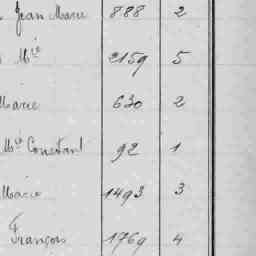 Jean Marie 888 2
Mie 2159 5
Marie 630 2
Mie Constant 92 1
Marie 1493 3
François 1769 4